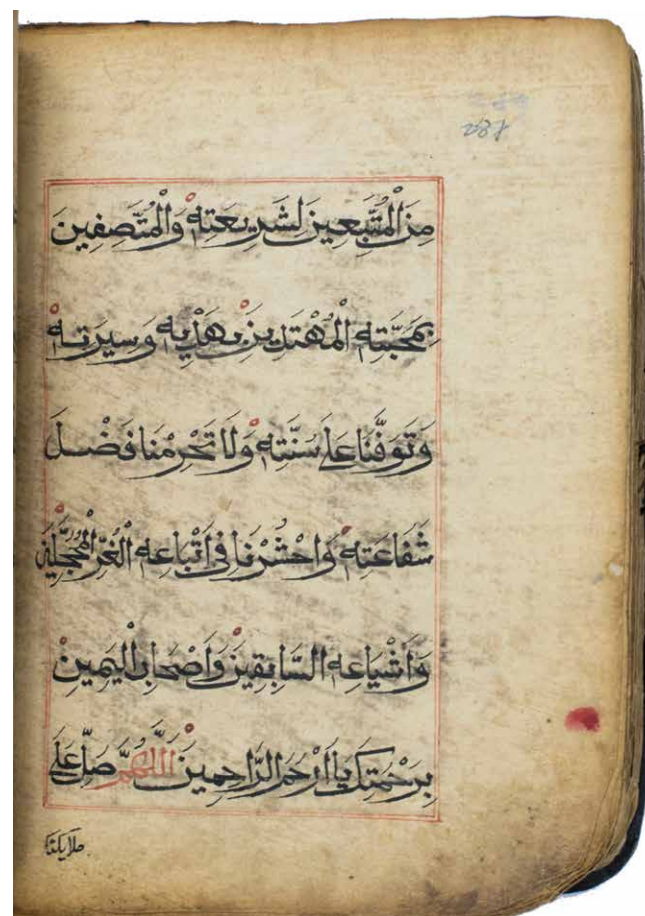 مِنَ الْمُتَّبِعِينَ لِشَرِيعَتِهِ وَالْمُتَّصِفِينَ
بِمَحَبَّتِهِ الْمُهْتَدِينَ بِهَدْيِهِ وَسِيرَتِهِ
وَتَوَفَّنَا عَلَى سُنَّتِهِ وَلَا تَحْرِمْنَا فَضْلَ
شَفَاعَتِهِ وَاحْشُرْنَا فِي اَتْبَاعِهِ الْغُرِّ الْمُحَجَّلِينَ
وَأَشْيَاعِهِ السَّابِقِينَ وَاَصْحَابِ الْيَمِينِ
بِرَحْمَتِكَ يَا اَرْحَمَ الرَّاحِمِينَ اَللّٰهُمَّ صَلِّ عَلَى